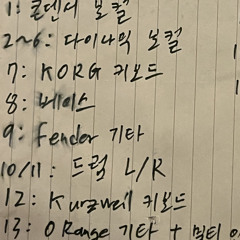 1: 콘덴서 보컬
2~6: 다이나믹 보컬
7: KORG 키보드
8: 베이스
9: Fender 기타
10/11: 드럼 L/R
12: Kurzweil 키보드
13: ORange 기타 + 멀티